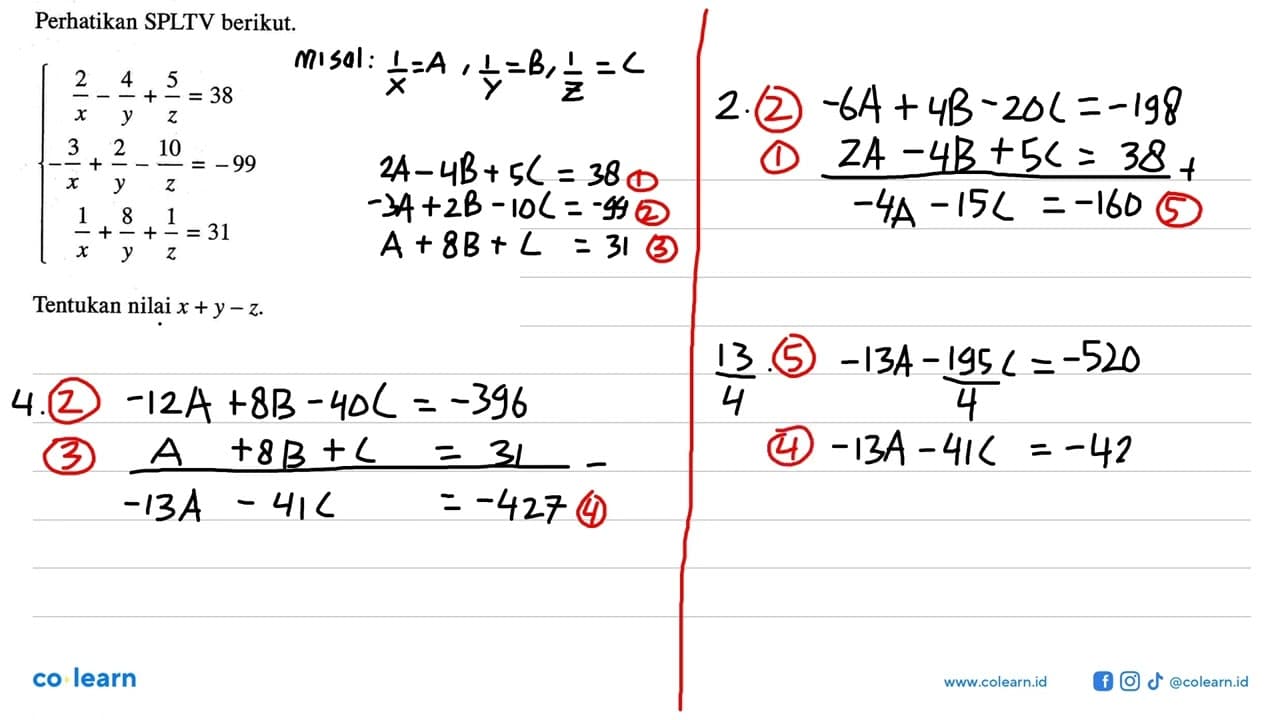 Perhatikan SPLTV berikut.
misal: 1/x = A, 1/y = B, 1/z = C
2/x - 4/y + 5/z = 38
-3/x + 2/y - 10/z = -99
1/x + 8/y + 1/z = 31
2A - 4B + 5C = 38 ①
-3A + 2B - 10C = -99 ②
A + 8B + C = 31 ③
Tentukan nilai x + y – z.
4.② -12A + 8B - 40C = -396
③ A + 8B + C = 31 –
-13A - 41C = -427 ④
2.② -6A + 4B - 20C = -198
① 2A - 4B + 5C = 38 +
-4A - 15C = -160 ⑤
13/4 .⑤ -13A - 195/4 C = -520
④ -13A - 41C = -42
co learn
www.colearn.id
@colearn.id